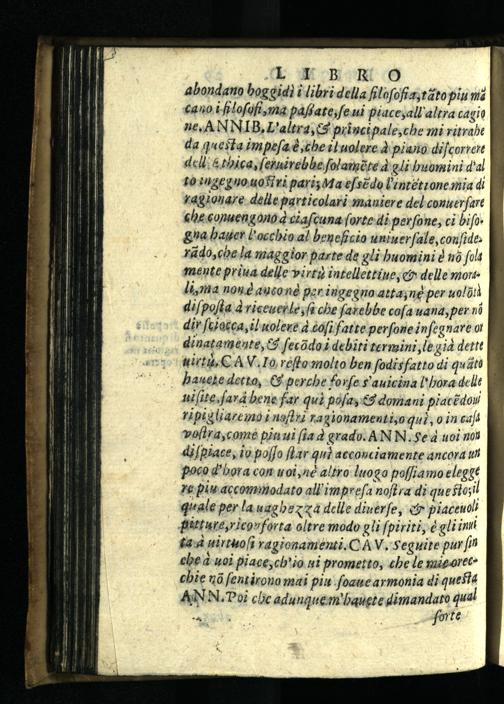 LIBRO
abondano hoggidì i libri della filosofia, tãto piu mã
cano i filosofi, ma paßate, se ui piace, all'altra cagio
ne. ANNIB. L'altra, & principale, che mi ritrahe
da questa impesa è, che il uolere à piano discorrere
dell'Ethica, seruirebbe solamẽte à gli huomini d'al
to ingegno uostri pari; Ma essẽdo l'intẽtione mia di
ragionare delle particolari maniere del conuersare
che conuengono à ciascuna sorte di persone, ci biso-
gna hauer l'occhio al beneficio uniuersale, conside-
rãdo, che la maggior parte de gli huomini è nõ sola
mente priua delle virtù intellettiue, & delle mora-
li, ma non è ancone per ingegno atta, nè per uolõtà
disposta à riceuerle, si che sarebbe cosa uana, per nõ
dir sciocca, il uolere à cosi fatte persone insegnare or
dinatamente, & secõdo i debiti termini, le già dette
uirtù. CAV. Io resto molto ben sodisfatto di quãto
hauete detto, & perche forse s'auicina l'hora delle
uisite, sarà bene far quì posa, & domani piacẽdoui
ripigliaremo i nostri ragionamenti, o quì, o in casa
vostra, come piu ui sia à grado. ANN. Se à uoi non
dispiace, io posso star quì acconciamente ancora un
poco d'hora con uoi, nè altro luogo possiamo elegge
re piu accommodato all'impresa nostra di questo; il
quale per la uaghezza delle diuerse, & piaceuoli
pitture, riconforta oltre modo gli spiriti, è gli inui
ta à uirtuosi ragionamenti. CAV. Seguite pur sin
che à uoi piace, ch'io ui prometto, che le mie orec-
chie nõ sentirono mai piu soaue armonia di questa
ANN. Poi che adunque m'hauete dimandato qual
sorte